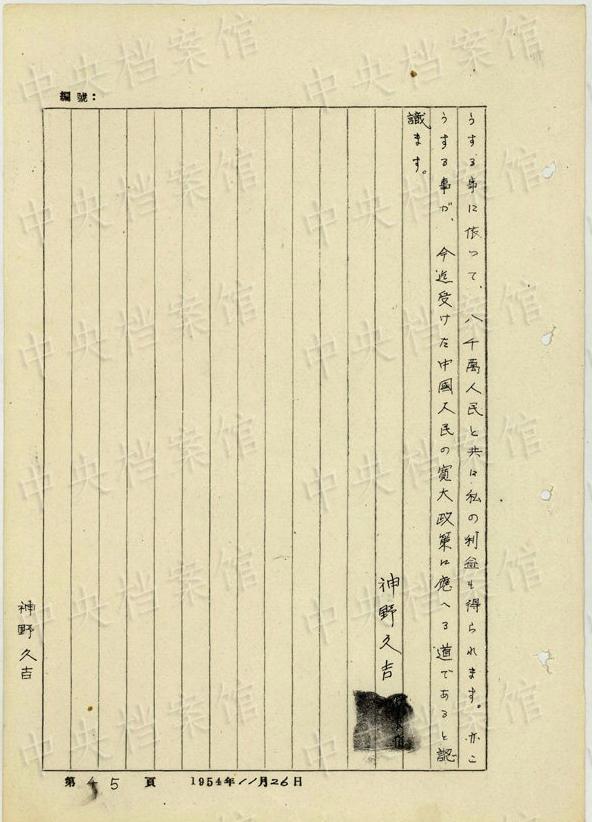 中央档案馆
編號:
うする事に依つて、八千萬人民と共に私の利益も得られます。亦こ
うする事が、今迄受けた中國人民の寛大政策に應へる道であると認
識ます。
神野久吉
神野久吉
第45頁 1954年11月26日